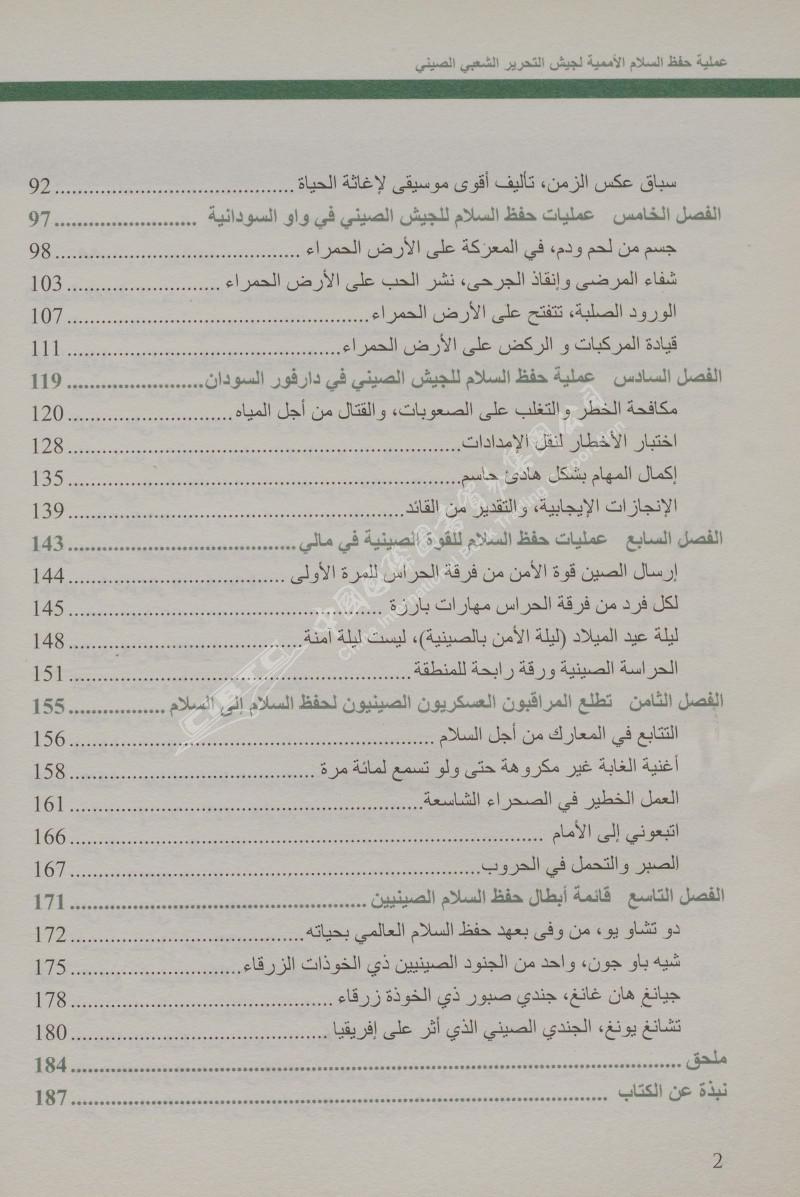 عملية حفظ السلام الأممية لجيش التحرير الشعبي الصيني
سباق عكس الزمن، تأليف أقوى موسيقى لإغاثة الحياة ........................................ 92
الفصل الخامس عمليات حفظ السلام للجيش الصيني في واو السودانية ........................ 97
جسم من لحم ودم، في المعركة على الأرض الحمراء ........................................ 98
شفاء المرضى وإنقاذ الجرحى، نشر الحب على الأرض الحمراء ........................... 103
الورود الصلبة، تتفتح على الأرض الحمراء ........................................ 107
قيادة المركبات و الركض على الأرض الحمراء ........................................ 111
الفصل السادس عملية حفظ السلام للجيش الصيني في دارفور السودان ........................ 119
مكافحة الخطر والتغلب على الصعوبات، والقتال من أجل المياه ........................... 120
اختبار الأخطار لنقل الإمدادات ........................................ 128
إكمال المهام بشكل هادئ حاسم ........................................ 135
الإنجازات الإيجابية، والتقدير من القائد ........................................ 139
الفصل السابع عمليات حفظ السلام للقوة الصينية في مالي ........................................ 143
إرسال الصين قوة الأمن من فرقة الحراس للمرة الأولى ........................................ 144
لكل فرد من فرقة الحراس مهارات بارزة ........................................ 145
ليلة عيد الميلاد (ليلة الأمن بالصينية)، ليست ليلة آمنة ........................................ 148
الحراسة الصينية ورقة رابحة للمنطقة ........................................ 151
الفصل الثامن تطلع المراقبون العسكريون الصينيون لحفظ السلام إلى السلام ................. 155
التتابع في المعارك من أجل السلام ........................................ 156
أغنية الغابة غير مكروهة حتى ولو تسمع لمائة مرة ........................................ 158
العمل الخطير في الصحراء الشاسعة ........................................ 161
اتبعوني إلى الأمام ........................................ 166
الصبر والتحمل في الحروب ........................................ 167
الفصل التاسع قائمة أبطال حفظ السلام الصينيين ........................................ 171
دو تشاو يو، من وفى بعهد حفظ السلام العالمي بحياته ........................................ 172
شيه باو جون، واحد من الجنود الصينيين ذي الخوذات الزرقاء ........................... 175
جيانغ هان غانغ، جندي صبور ذي الخوذة زرقاء ........................................ 178
تشانغ يونغ، الجندي الصيني الذي أثر على إفريقيا ........................................ 180
ملحق ........................................ 184
نبذة عن الكتاب ........................................ 187
2